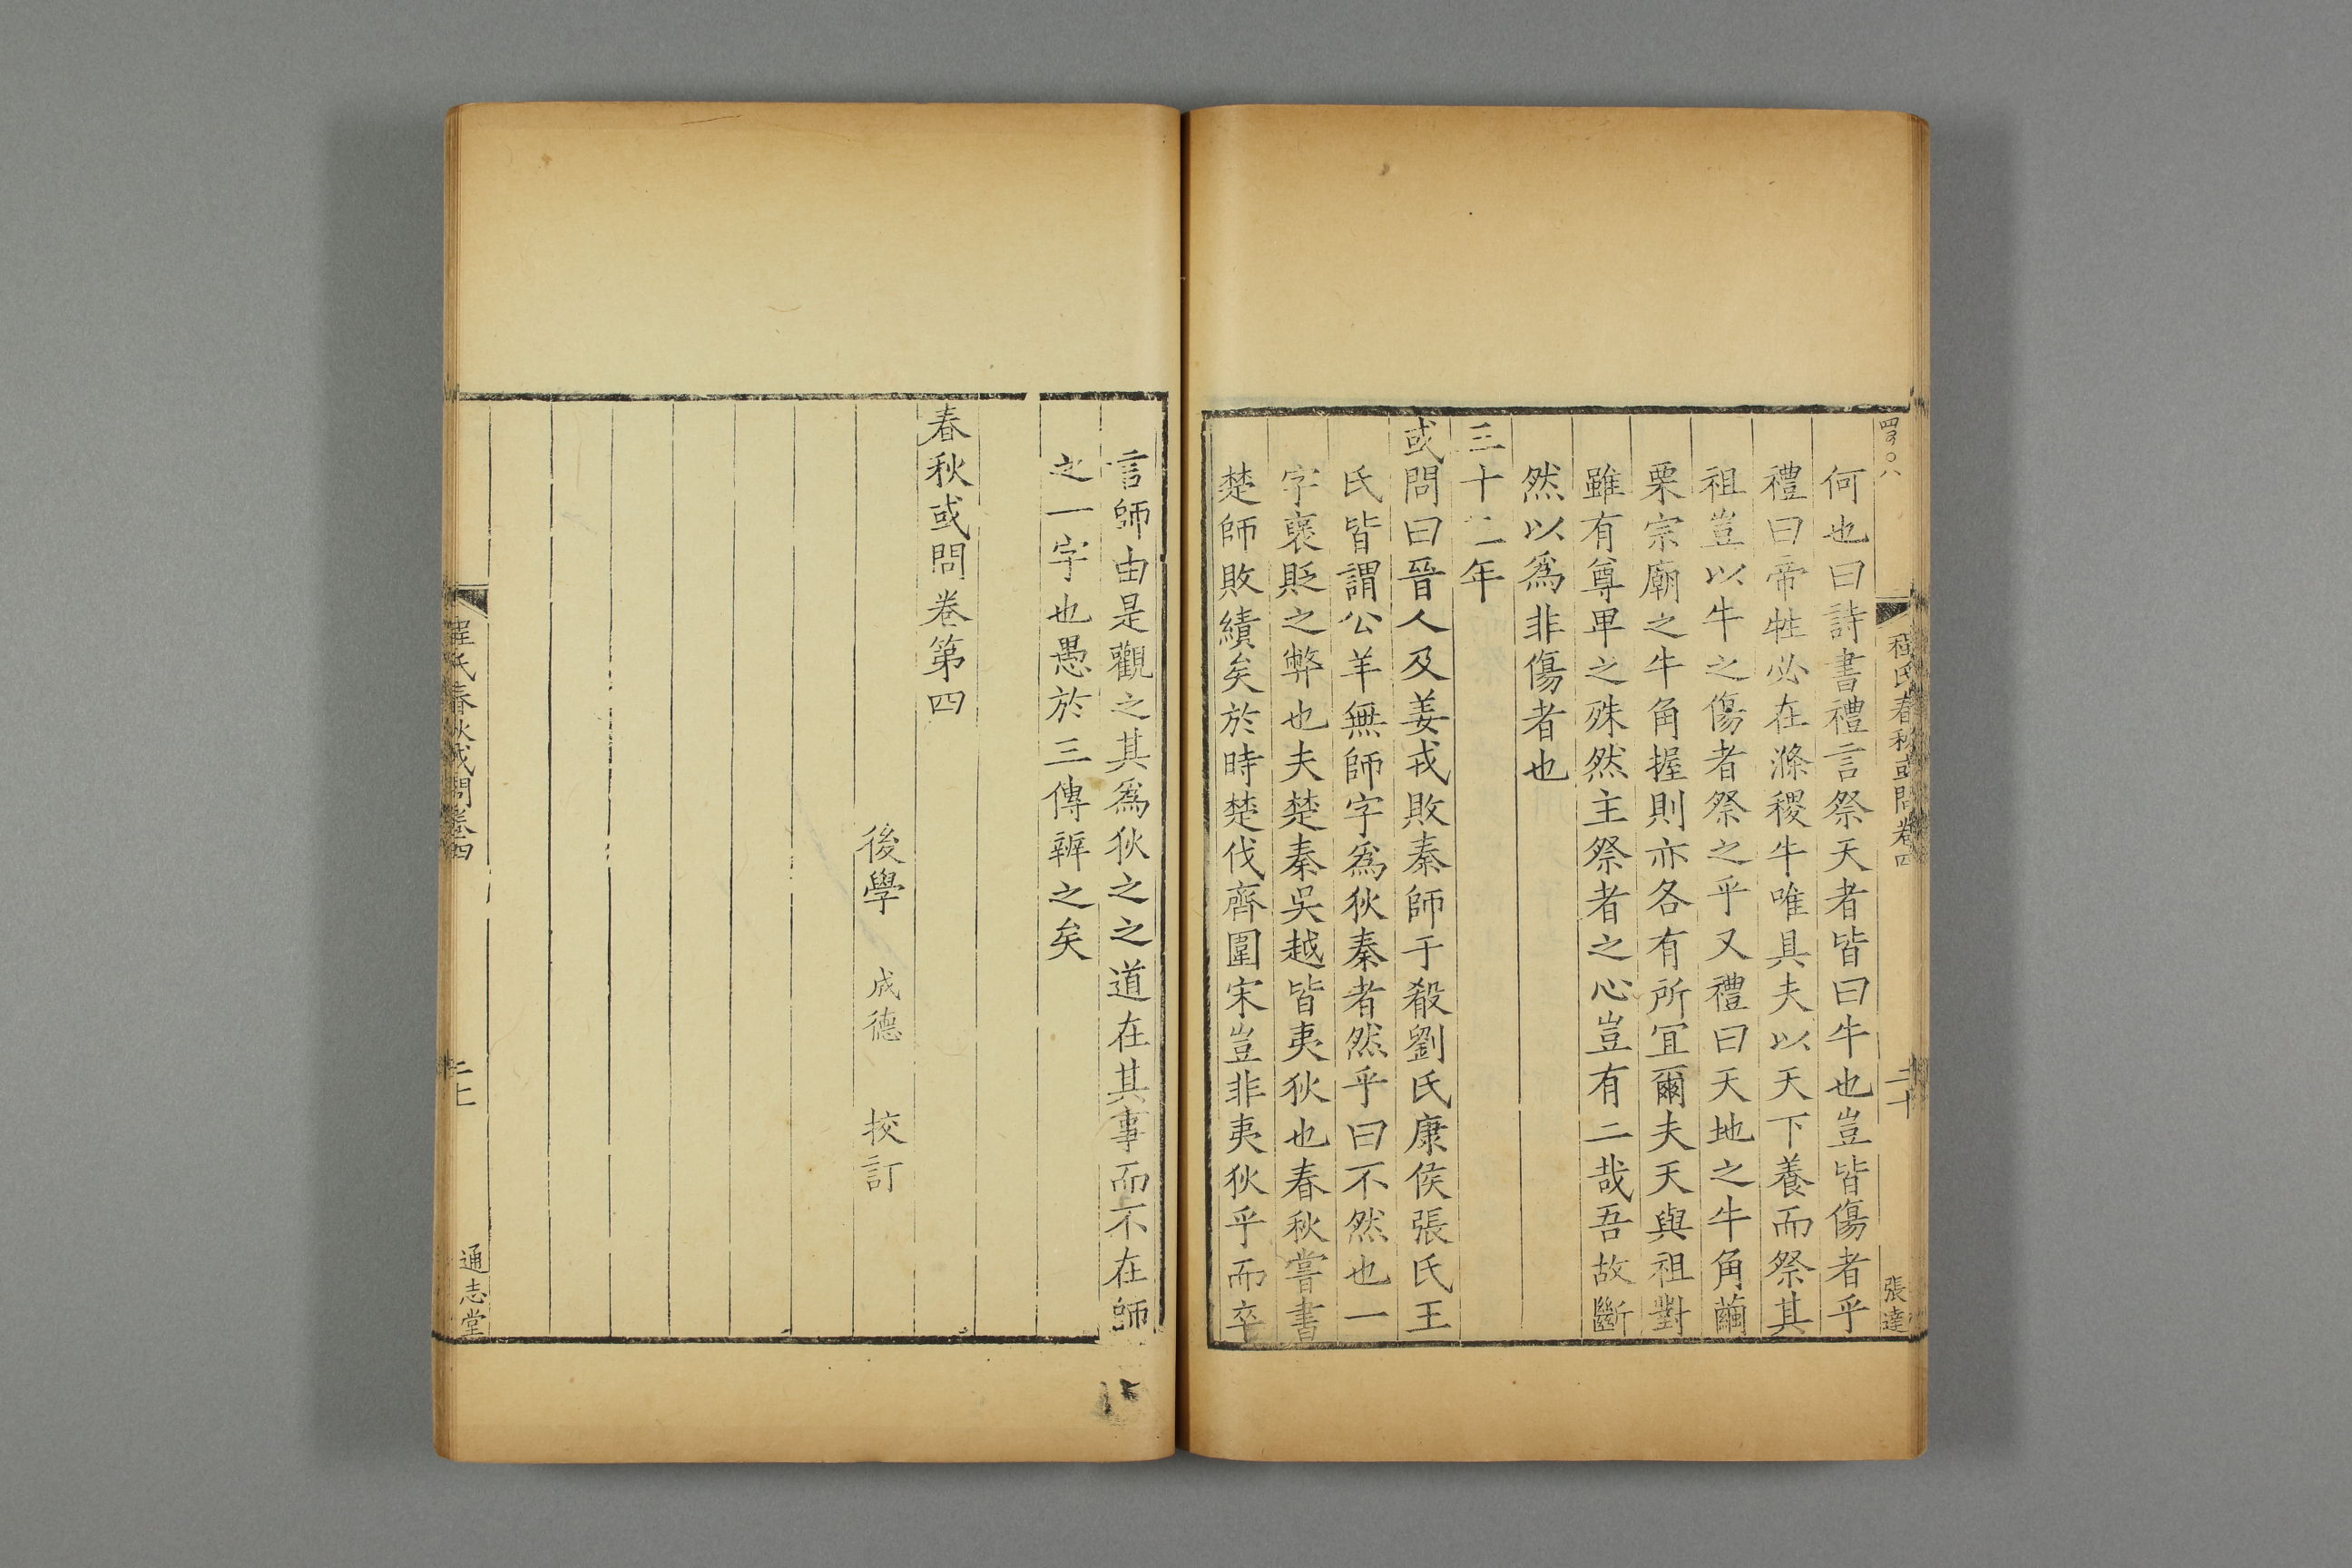 程氏春秋或問卷四
張達
何也曰詩書禮言祭天者皆曰牛也豈皆傷者乎
禮曰帝牲必在滌稷牛唯具夫以天下養而祭其
祖豈以牛之傷者祭之乎又禮曰天地之牛角繭
栗宗廟之牛角握則亦各有所宜爾夫天與祖對
雖有尊卑之殊然主祭者之心豈有二哉吾故斷
然以爲非傷者也
三十二年
或問曰晉人及姜戎敗秦師于殽劉氏康侯張氏王
氏皆謂公羊無師字爲狄秦者然乎曰不然也一
字襃貶之弊也夫楚秦吳越皆夷狄也春秋嘗書
楚師敗績矣於時楚伐齊圍宋豈非夷狄乎而卒
言師由是觀之其爲狄之之道在其事而不在師
之一字也愚於三傳辨之矣
春秋或問卷第四
後學 成德 挍訂
程氏春秋或問卷四
通志堂